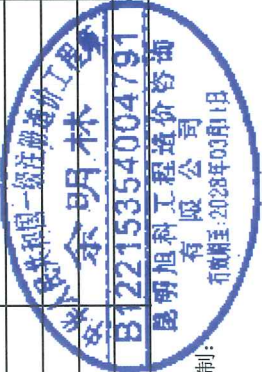 中华人民共和国一级注册造价工程师
余明林
B12215354004791
昆明旭科工程造价咨询
有限公司
有效期至:2028年03月11日
制: